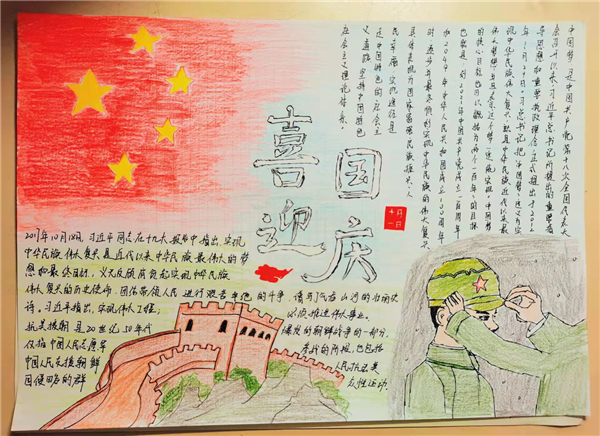 中国梦,是中国共产党第十八次全国代表大
会召开以来,习近平总书记所提出的重要指
导思想和重要执政理念,正式提出于2012
年11月29日。习总书记把"中国梦"定义为"实
现中华民族伟大复兴,就是中华民族近代以来最
伟大梦想",并且表示这个梦"一定能实现"。"中国梦"
的核心目标也可以概括为"两个一百年"的目标,
也就是:到2021年中国共产党成立100周年
和2049年中华人民共和国成立100周年
时,逐步并最终顺利实现中华民族的伟大复兴,
具体表现为国家富强、民族振兴、人
民幸福,实现途径是
走中国特色的社会主
义道路、坚持中国特色
社会主义理论体系。
喜迎
国庆
十月
一日
2017年10月18日,习近平同志在十九大报告中指出,实现
中华民族伟大复兴是近代以来中华民族最伟大的梦
想和最终目标,义无反顾肩负起实现中华民族
伟大复兴的历史使命,团结带领人民进行艰苦卓绝的斗争,谱写了气吞山河的壮丽史
诗。习近平指出,实现伟大工程,必须推进伟大事业。
抗美援朝是20世纪50年代爆发的朝鲜战争的一部分,
仅指中国人民志愿军参战的阶段,也包括
中国人民支援朝鲜人民抗击美
国侵略的群众性运动